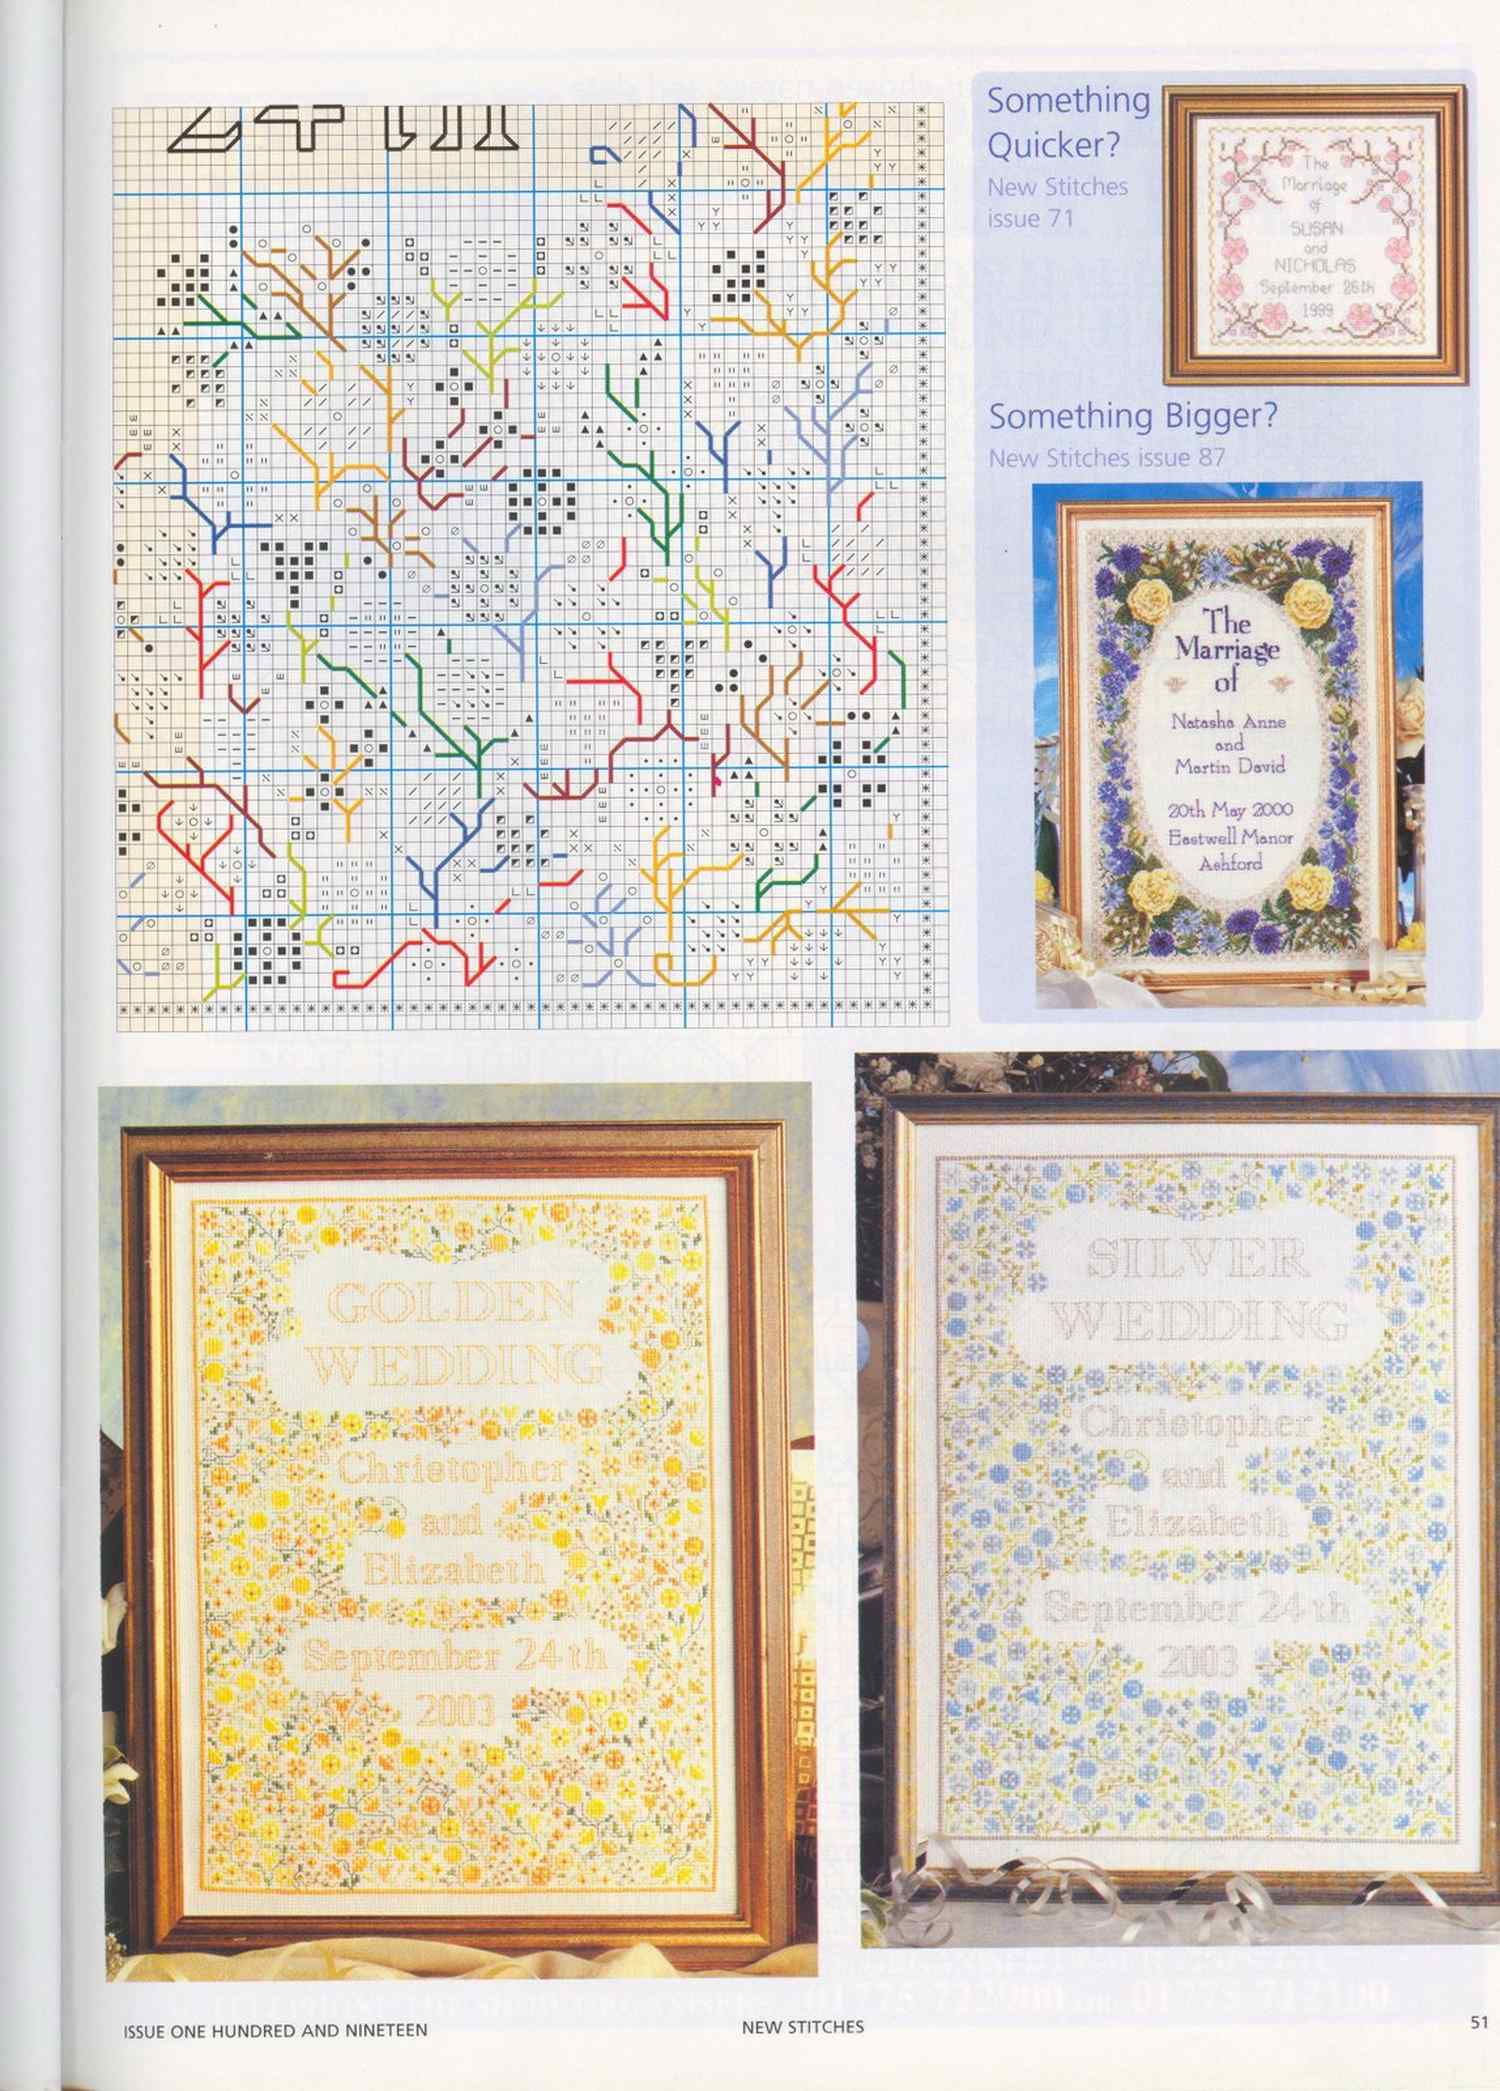 Something
Quicker?
New Stitches
issue 71
The
Marriage
of
SUSAN
and
NICHOLAS
September 26th
1999
Something Bigger?
New Stitches issue 87
The
Marriage
of
Natasha Anne
and
Martin David
20th May 2000
Eastwell Manor
Ashford
GOLDEN
WEDDING
Christopher
and
Elizabeth
September 24th
2003
SILVER
WEDDING
Christopher
and
Elizabeth
September 24th
2003
ISSUE ONE HUNDRED AND NINETEEN
NEW STITCHES
51